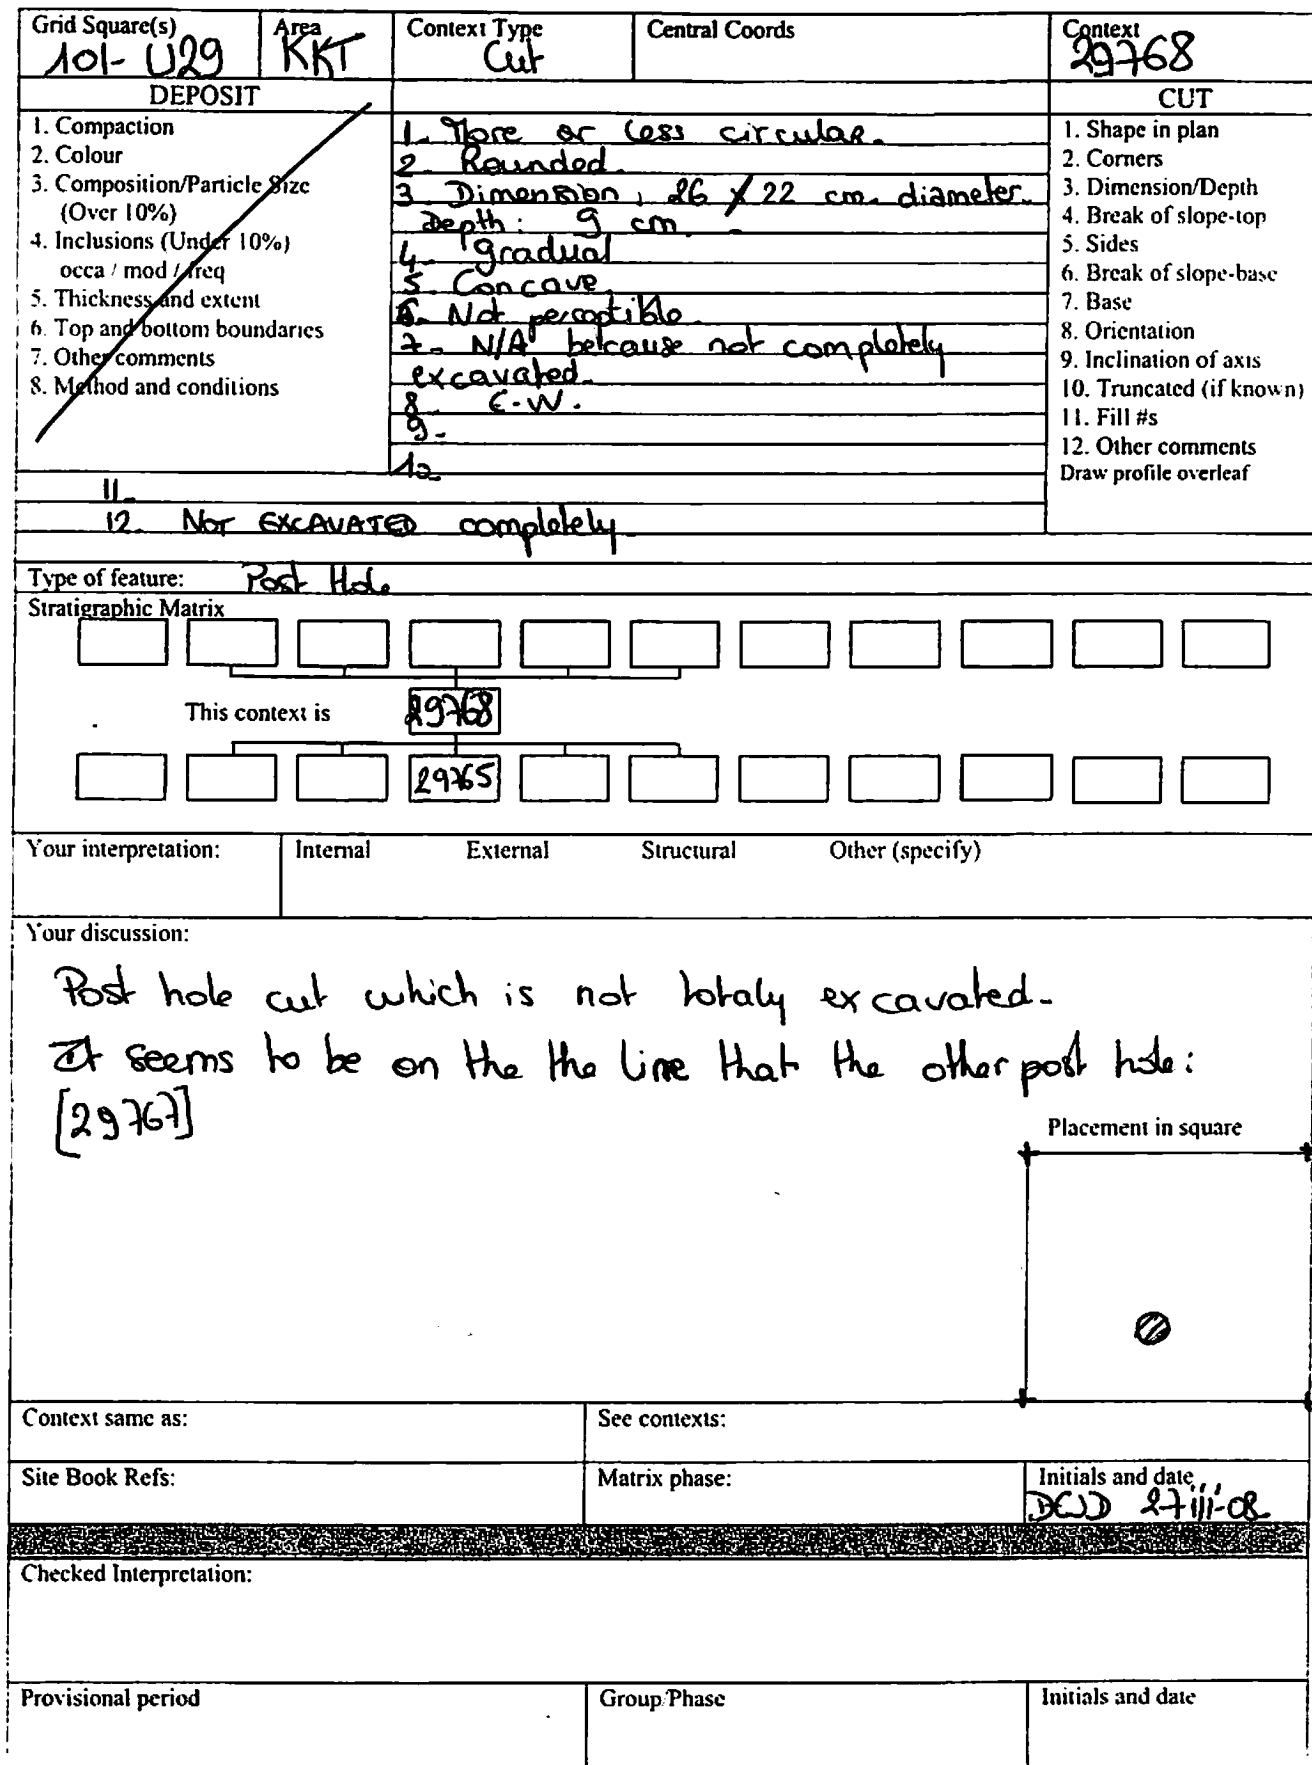 Grid Square(s)
101- U29
Area
KKT
Context Type
Cut
Central Coords
Context
29768
DEPOSIT
1. Compaction
2. Colour
3. Composition/Particle Size
(Over 10%)
4. Inclusions (Under 10%)
occa / mod / freq
5. Thickness and extent
6. Top and bottom boundaries
7. Other comments
8. Method and conditions
1. More or less circular.
2. Rounded.
3. Dimension : 26 X 22 cm. diameter.
Depth : 9 cm.
4. gradual
5. Concave
6. Not perceptible.
7. N/A because not completely
excavated.
8. E-W.
9.
10.
11.
12. NOT EXCAVATED completely.
CUT
1. Shape in plan
2. Corners
3. Dimension/Depth
4. Break of slope-top
5. Sides
6. Break of slope-base
7. Base
8. Orientation
9. Inclination of axis
10. Truncated (if known)
11. Fill #s
12. Other comments
Draw profile overleaf
Type of feature: Post Hole
Stratigraphic Matrix
This context is 29768
29765
Your interpretation: Internal External Structural Other (specify)
Your discussion:
Post hole cut which is not totaly excavated.
It seems to be on the the line that the other post hole:
[29767]
Placement in square
Context same as:
See contexts:
Site Book Refs:
Matrix phase:
Initials and date
27-iii-08
Checked Interpretation:
Provisional period
Group/Phase
Initials and date